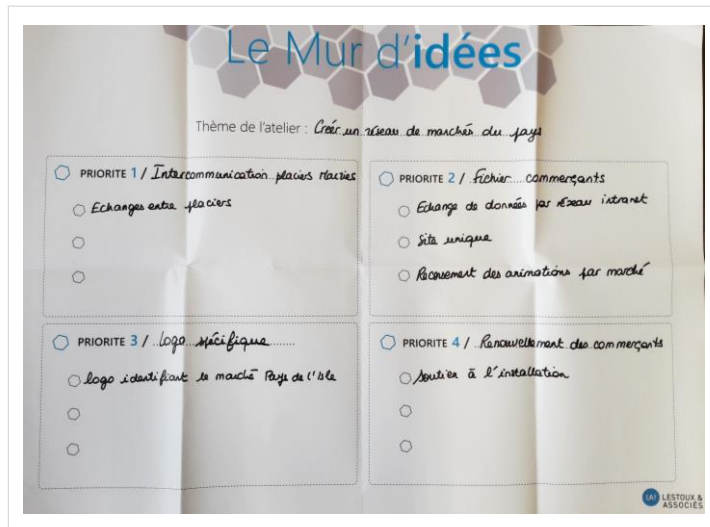 Le Mur d'idées
Thème de l'atelier : Créer un réseau de marchés du pays
PRIORITE 1 / Intercommunication placiers Mairies
Echanges entre placiers
PRIORITE 2 / Fichier commerçants
Echange de données par réseau intranet
Site unique
Recensement des animations par marché
PRIORITE 3 / Logo spécifique
logo identifiant le marché Pays de l'Isle
PRIORITE 4 / Renouvellement des commerçants
Soutien à l'installation
(A) LESTOUX &
ASSOCIÉS